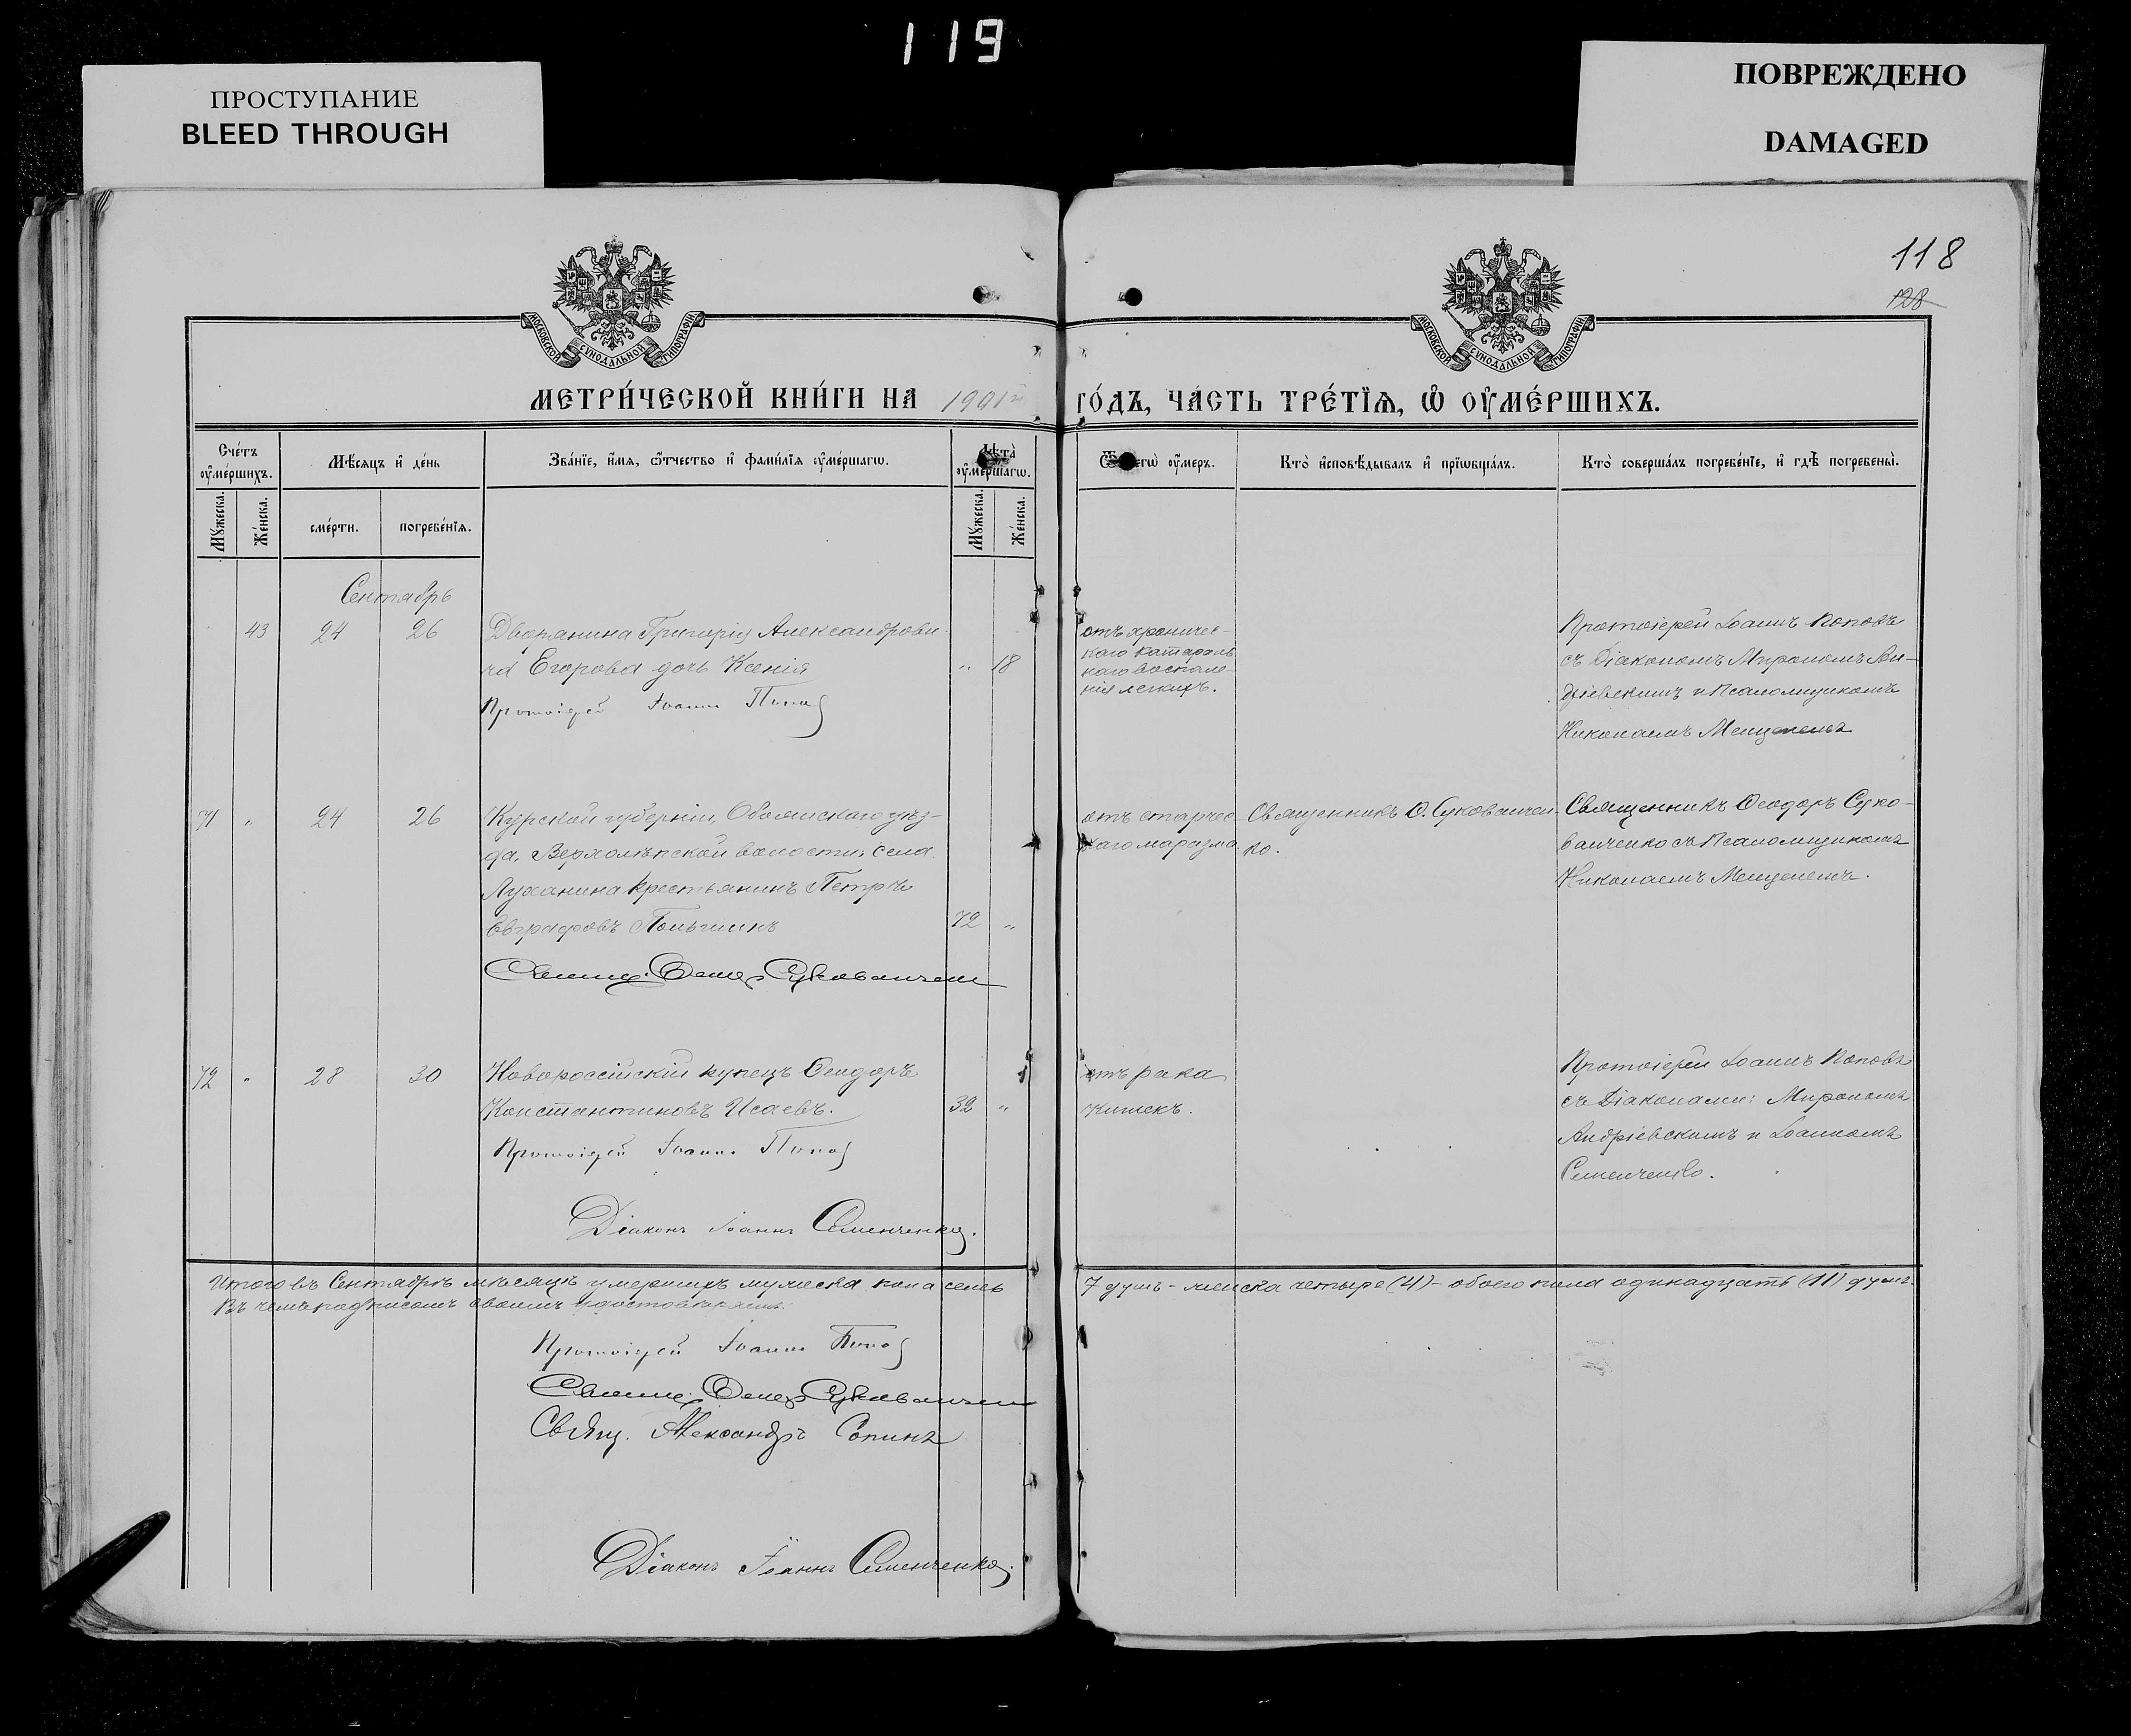 119
ПРОСТУПАНИЕ
BLEED THROUGH
ПОВРЕЖДЕНО
DAMAGED
118
128
МОСКОВСКОЙ СУНОДАЛЬНОЙ ТИПОГРАФІИ
МОСКОВСКОЙ СУНОДАЛЬНОЙ ТИПОГРАФІИ
МЕТРИ́ЧЕСКОЙ КНИ́ГИ НА 1901й
ГО́ДЪ, ЧА́СТЬ ТРЕ́ТЇѦ, Ѽ ОУ҆МЕ́РШИХЪ.
Сче́тъ
оу҆ме́ршихъ.
Мѣ́сяцъ и҆ де́нь
Зва́нїе, и҆́мя, ѻ҆́тчество и҆ фами́лїя оу҆ме́ршагѡ.
Лѣта̀
оу҆ме́ршагѡ.
Мꙋ́жеска.
Же́нска.
сме́рти.
погребе́нїя.
Мꙋ́жеска.
Же́нска.
оу҆́меръ.
Кто̀ и҆сповѣ́дывалъ и҆ прїѡбща́лъ.
Кто̀ соверша́лъ погребе́нїе, и҆ гдѣ̀ погребены̀.
Сентябрь
43 24 26 Дворянина Григорія Александрови-
ча Егорова дочь Ксенія „ 18
Протоіерей Іоаннъ Поповъ
отъ хроничес-
каго катараль
каго воспале-
нія легкихъ.
Протоіерей Іоаннъ Поповъ
съ Діакономъ Мирономъ Ан-
дріевскимъ и Псаломщикомъ
Николаемъ Менцелемъ
71 „ 24 26 Курской губерніи, Обоянскаго уѣз-
да, Верхопѣнской волости, села
Луханина крестьянинъ Петръ
Евграфовъ 72 „
Священ. Феодоръ Сукованченко
отъ старчес-
каго маразма.
Священникъ Ѳ. Сукованчен-
ко.
Священникъ Ѳеодоръ Суко-
ванченко съ Псаломщикомъ
Николаемъ Менцелемъ.
72 „ 28 30 Новороссійскій купецъ Ѳеодоръ
Константиновъ Исаевъ. 32 „
Протоіерей Іоаннъ Поповъ
Діаконъ Іоаннъ Семенченко.
отъ рака
кишекъ.
Протоіерей Іоаннъ Поповъ
съ Діаконами: Мирономъ
Андріевскимъ и Іоанномъ
Семенченко.
Итого въ Сентябрѣ мѣсяцѣ умершихъ мужеска пола семь
7 душъ - женска четыре (4) - обоего пола одинадцать (11) душъ.
Въ чемъ подписомъ своимъ удостовѣряемъ:
Протоіерей Іоаннъ Поповъ
Священ. Феодоръ Сукованченко
Свящ. Александръ Сопинъ
Діаконъ Іоаннъ Семенченко.